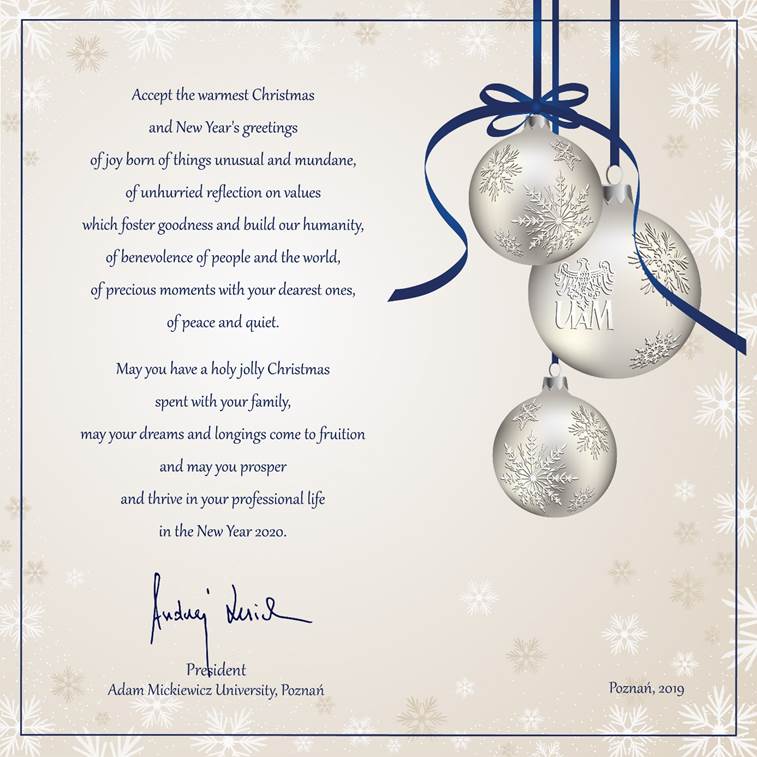 Accept the warmest Christmas
and New Year's greetings
of joy born of things unusual and mundane,
of unhurried reflection on values
which foster goodness and build our humanity,
of benevolence of people and the world,
of precious moments with your dearest ones,
of peace and quiet.
May you have a holy jolly Christmas
spent with your family,
may your dreams and longings come to fruition
and may you prosper
and thrive in your professional life
in the New Year 2020.
President
Adam Mickiewicz University, Poznań
Poznań, 2019
UAM